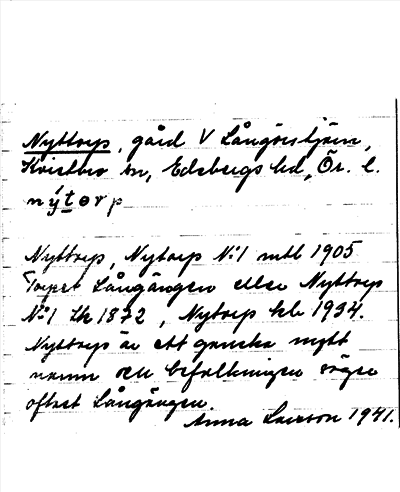 Nyttorp, gård V Långörstjärn,
Kvistbro sn, Edsbergs hd, Ör. l.
nýtorp
Nyttorp, Nytorp No 1 mtl 1905
Torpet Långängen eller Nyttorp
No 1 Lk 1872, Nytorp kb 1934.
Nyttorp är ett ganska nytt
namn och befolkningen säger
oftast Långängen.
Anna Larsson 1941.